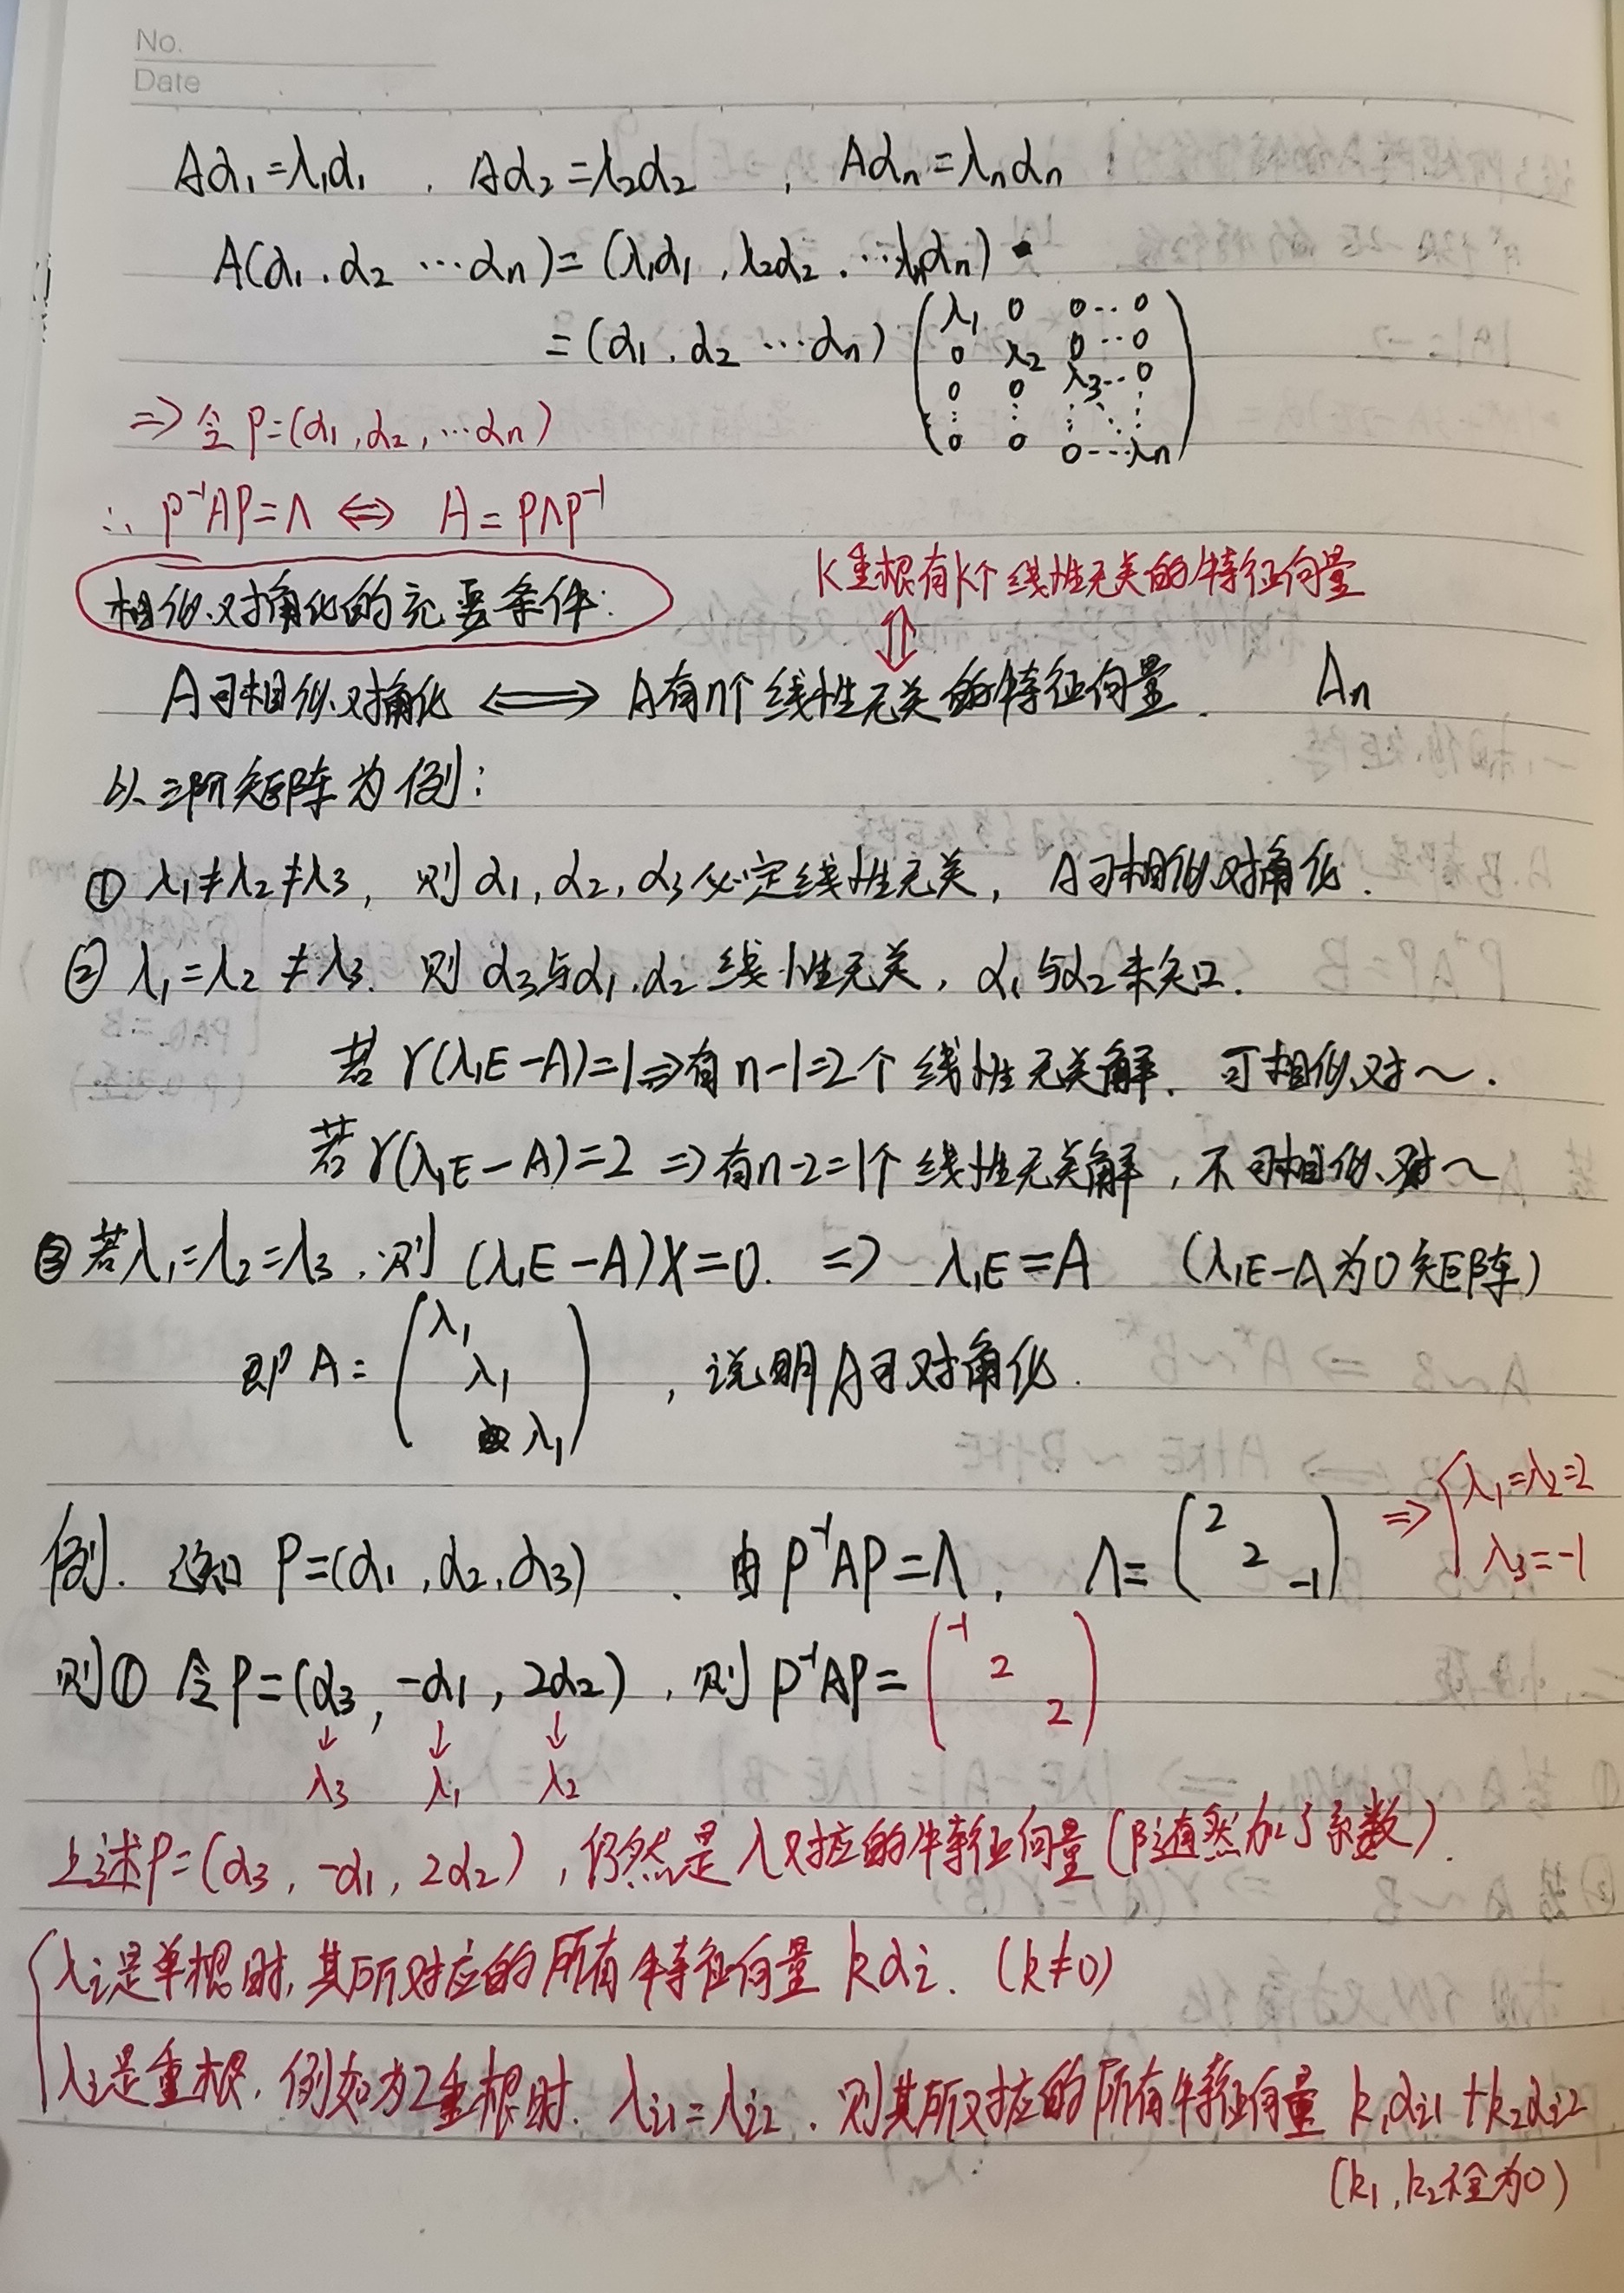 No.
Date
Aα₁=λ₁α₁ , Aα₂=λ₂α₂ , Aαₙ=λₙαₙ
A(α₁,α₂ ⋯αₙ)=(λ₁α₁,λ₂α₂,⋯λₙαₙ)
=(α₁,α₂ ⋯αₙ)
λ₁ 0 0⋯0
0 λ₂ 0⋯0
0 0 λ₃⋯0
⋮ ⋮ ⋮ ⋱ ⋮
0 0 0⋯λₙ
⇒令P=(α₁,α₂,⋯αₙ)
∴ P⁻¹AP=Λ ⇔ A=PΛP⁻¹
K重根有K个线性无关的特征向量
⇕
相似对角化的充要条件:
A可相似对角化 ⟺ A有n个线性无关的特征向量. Aₙ
以三阶矩阵为例:
① λ₁≠λ₂≠λ₃, 则α₁,α₂,α₃必定线性无关, A可相似对角化.
② λ₁=λ₂≠λ₃. 则α₃与α₁,α₂线性无关, α₁与α₂未知.
若r(λ₁E-A)=1⇒有n-1=2个线性无关解. 可相似对~.
若r(λ₁E-A)=2⇒有n-2=1个线性无关解, 不可相似对~
③若λ₁=λ₂=λ₃,则(λ₁E-A)X=0. ⇒ λ₁E=A (λ₁E-A为0矩阵)
即A=(λ₁ λ₁ λ₁), 说明A可对角化.
⇒{λ₁=λ₂=2
λ₃=-1
例. 已知P=(α₁,α₂,α₃). 由P⁻¹AP=Λ, Λ=(2 2 -1)
则① 令P=(α₃,-α₁,2α₂), 则P⁻¹AP=(-1 2 2)
↓ ↓ ↓
λ₃ λ₁ λ₂
上述P=(α₃,-α₁,2α₂),仍然是λ对应的特征向量(虽然加了系数).
λᵢ是单根时,其所对应的所有特征向量kαᵢ. (k≠0)
λᵢ是重根,例如为2重根时. λᵢ₁=λᵢ₂. 则其所对应的所有特征向量k₁αᵢ₁+k₂αᵢ₂
(k₁,k₂不全为0)